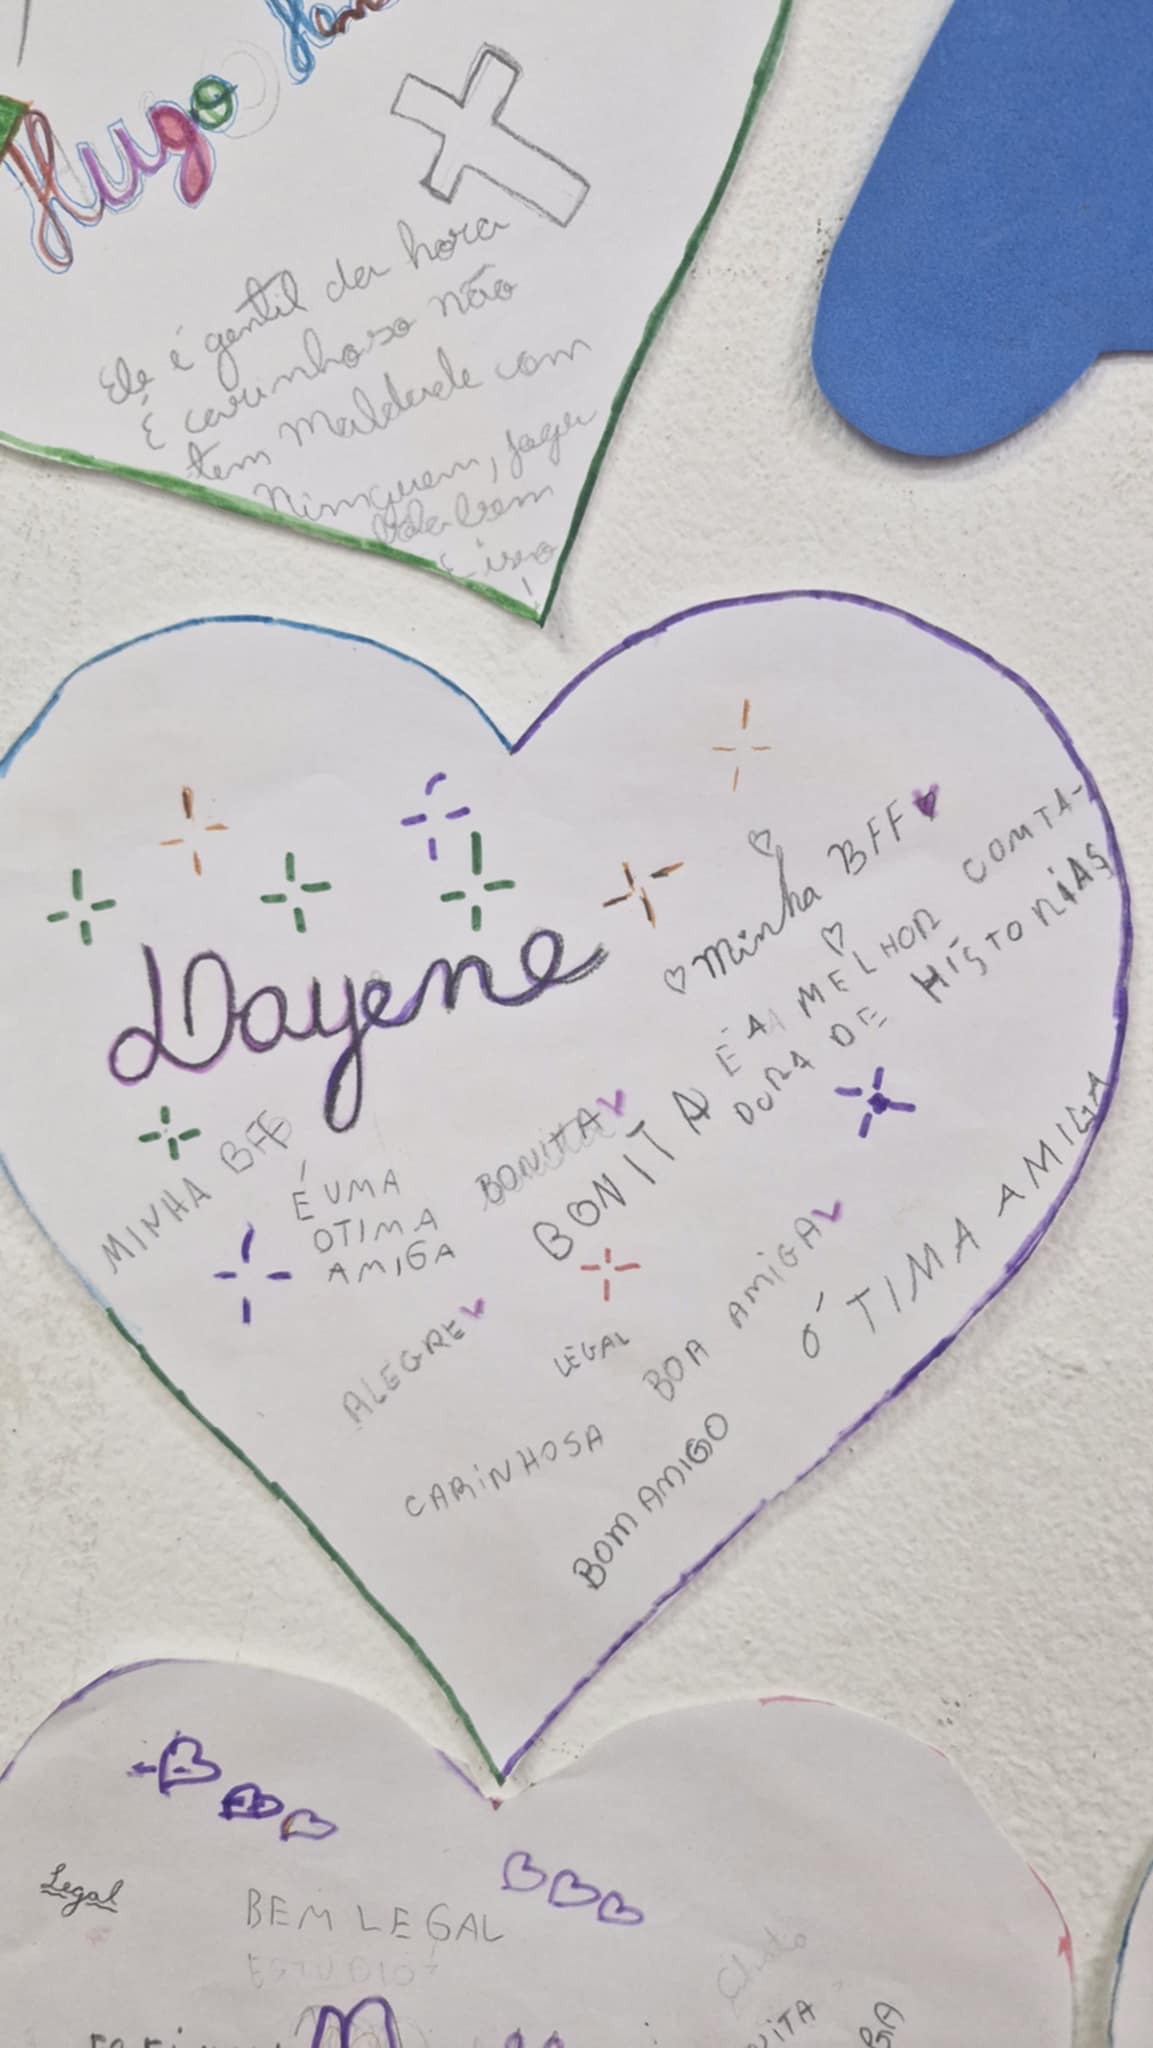 Hugo
Ele é gentil da hora
É carinhoso não
tem maldade com
Nimguem, joga
bola bem
E isso
!
Dayene
Minha BFF
É A A MELHOR CONTA-
DORA DE HISTORIAS
MINHA BFF
É UMA
OTIMA
AMIGA
BONITA
BONITA
ALEGRE
LEGAL
BOA AMIGA
ÓTIMA AMIGA
CARINHOSA
BOM AMIGO
Legal
BEM LEGAL